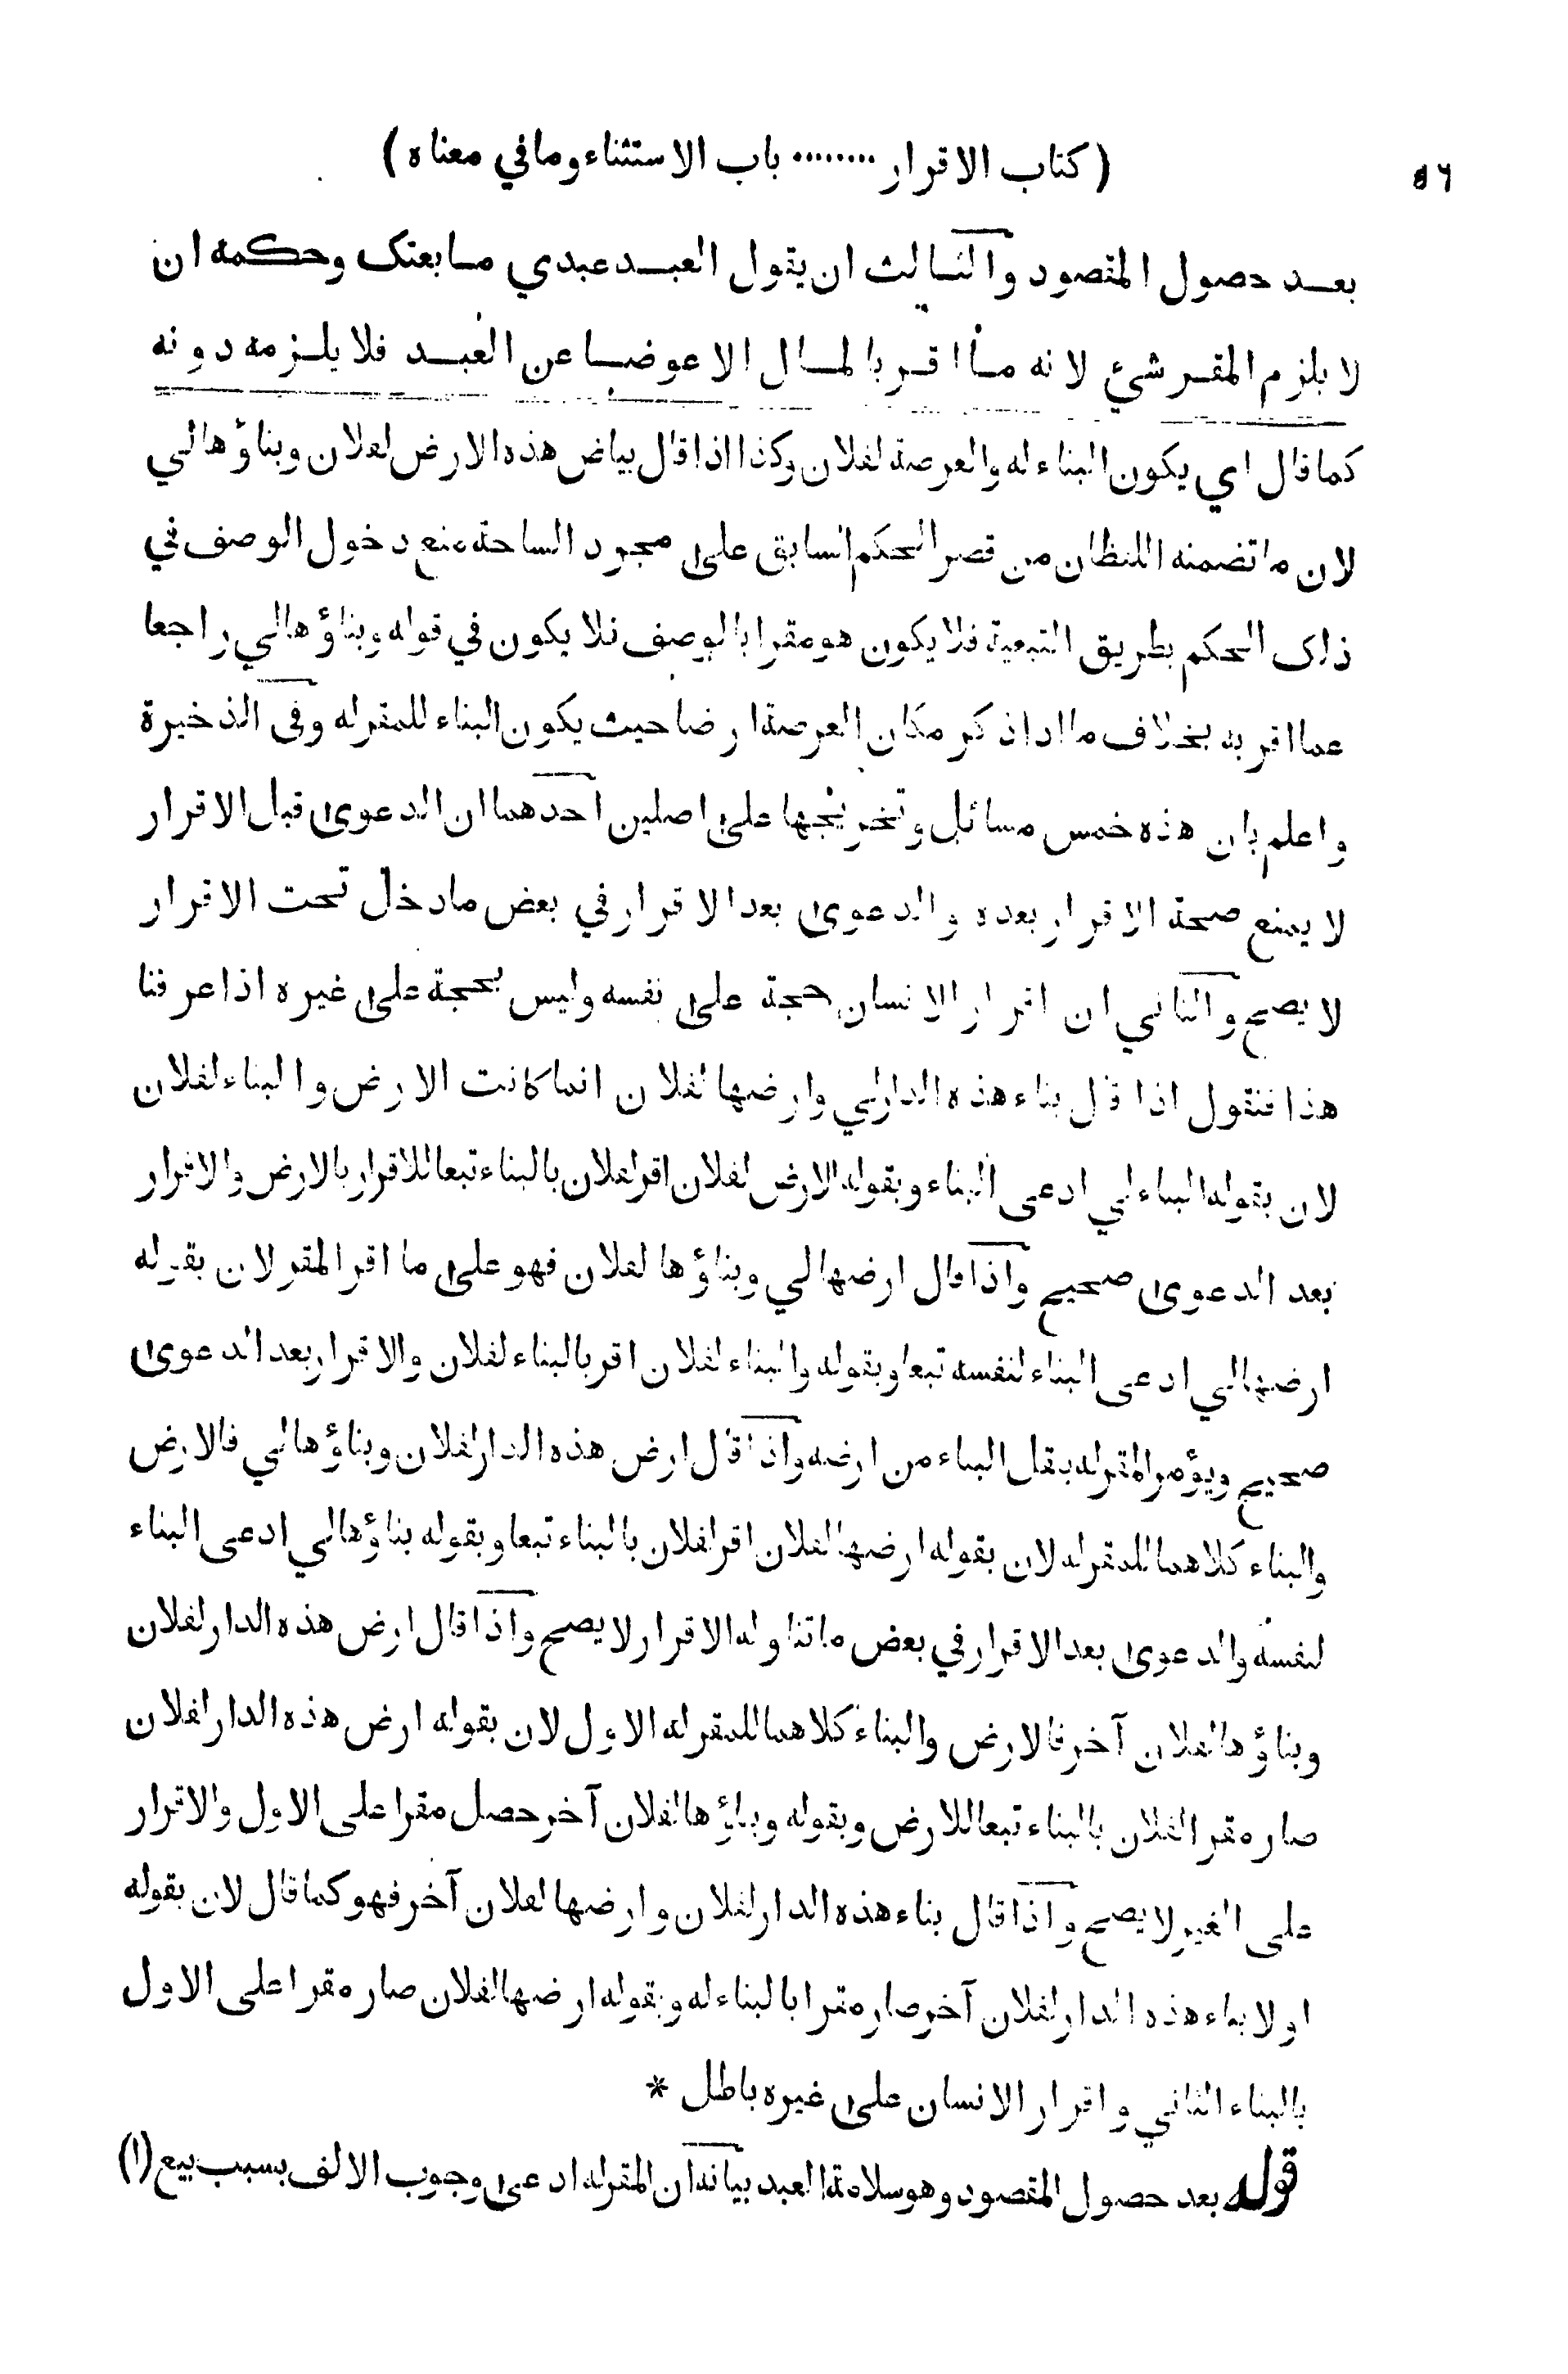 ٥٦
( كتاب الاقرار ........ باب الاستثناء ومافي معناه )
بعد حصول المقصود والثالث ان يقول العبد عبدي مابعتك وحكمه ان
لا يلزم المقر شئ لانه ما اقر بالمال الا عوضا عن العبد فلا يلزمه دونه
كما قال اي يكون البناء له والعرصة لفلان وكذا اذا قال بياض هذه الارض لفلان وبناؤها لي
لان ما تضمنه اللفظان من قصر الحكم السابق على مجرد الساحة منع دخول الوصف في
ذلك الحكم بطريق التبعية فلا يكون هو مقرا بالوصف فلا يكون في قوله وبناؤها لي راجعا
عما اقر به بخلاف ما اذا ذكر مكان العرصة ارضا حيث يكون البناء للمقر له وفى الذخيرة
واعلم بان هذه خمس مسائل وتخريجها على اصلين احدهما ان الدعوى قبل الاقرار
لا يمنع صحة الاقرار بعده والدعوى بعد الاقرار في بعض ما دخل تحت الاقرار
لا يصح والثاني ان اقرار الانسان حجة على نفسه وليس بحجة على غيره اذا عرفنا
هذا فنقول اذا قال بناء هذه الدار لي وارضها لفلان انما كانت الارض والبناء لفلان
لان بقوله البناء لي ادعى البناء وبقوله الارض لفلان اقر لفلان بالبناء تبعا للاقرار بالارض والاقرار
بعد الدعوى صحيح واذا قال ارضها لي وبناؤها لفلان فهو على ما اقر المقر لان بقوله
ارضها لي ادعى البناء لنفسه تبعا وبقوله والبناء لفلان اقر بالبناء لفلان والاقرار بعد الدعوى
صحيح ويؤمر المقر له بنقل البناء من ارضه واذا قال ارض هذه الدار لفلان وبناؤها لي فالارض
والبناء كلاهما للمقر له لان بقوله ارضها لفلان اقر لفلان بالبناء تبعا وبقوله بناؤها لي ادعى البناء
لنفسه والدعوى بعد الاقرار في بعض ما تناوله الاقرار لا يصح واذا قال ارض هذه الدار لفلان
وبناؤها لفلان آخر فالارض والبناء كلاهما للمقر له الاول لان بقوله ارض هذه الدار لفلان
صار مقرا لفلان بالبناء تبعا للارض وبقوله وبناؤها لفلان آخر حصل مقرا على الاول والاقرار
على الغير لا يصح واذا قال بناء هذه الدار لفلان وارضها لفلان آخر فهو كما قال لان بقوله
اولا بناء هذه الدار لفلان آخر صار مقرا بالبناء له وبقوله ارضها لفلان صار مقرا على الاول
بالبناء الثاني واقرار الانسان على غيره باطل *
قوله بعد حصول المقصود وهو سلامة العبد بيانه ان المقر له ادعى وجوب الالف بسبب بيع (١)